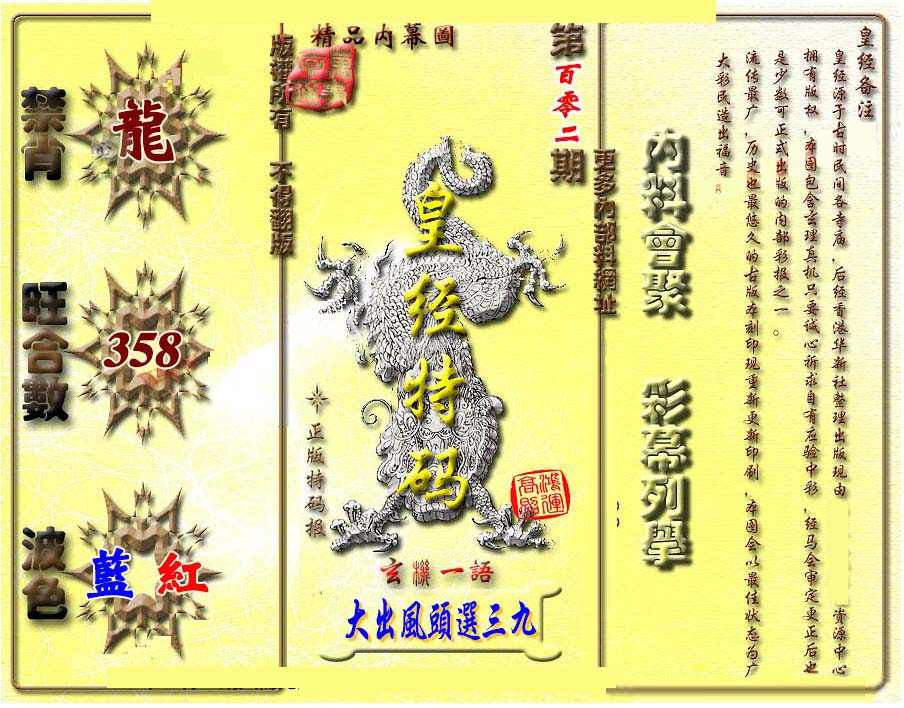 禁肖
龍
旺合數
358
波色
藍 紅
版權所有 不得翻版
精品内幕圖
第百零二期
皇经特码
正版特码报
鸿運
高照
玄機一語
大出風頭選三九
更多内部料網址
内料會聚 彩幕列擧
皇经备注
皇经源于古时民间各寺庙,后经香港华新社整理出版现由 资源中心
拥有版权,本图包含玄理真机只要诚心祈求自有应验中彩,经马会审定更正后也
是少数可正式出版的内部彩报之一。
流传最广,历史也最悠久的古版本刻印现重新更新印刷,本图会以最佳状态为广
大彩民造出福音